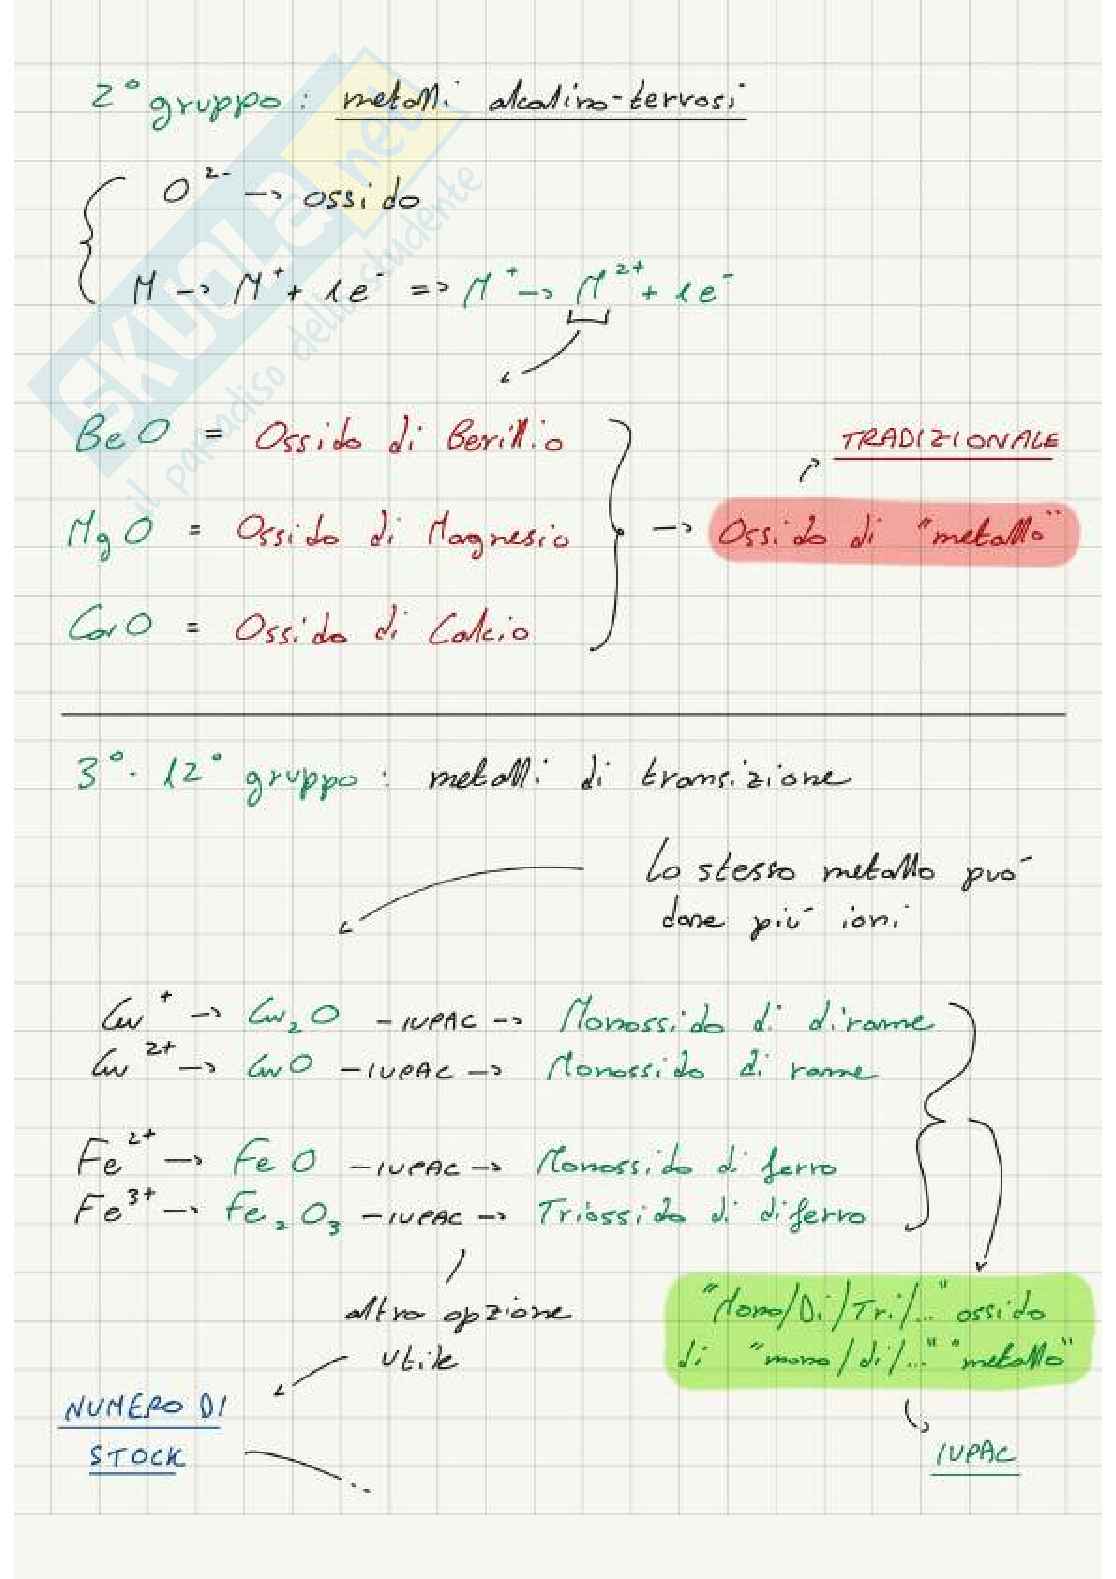 2° gruppo: metalli alcalino-terrosi
O²⁻ -> ossido
M -> M⁺ + 1e⁻ => M⁺ -> M²⁺ + 1e⁻
BeO = Ossido di Berillio
TRADIZIONALE
MgO = Ossido di Magnesio -> Ossido di "metallo"
CaO = Ossido di Calcio
3°- 12° gruppo: metalli di transizione
Lo stesso metallo può
dare più ioni
Cu⁺ -> Cu₂O -IUPAC-> Monossido di dirame
Cu²⁺ -> CuO -IUPAC-> Monossido di rame
Fe²⁺ -> FeO -IUPAC-> Monossido di ferro
Fe³⁺ -> Fe₂O₃ -IUPAC-> Triossido di diferro
altra opzione
utile
"Mono/Di/Tri/..." ossido
di "mono/di/..." "metallo"
NUMERO DI
STOCK ..
IUPAC
SKUOLA.net
il paradiso dello studente